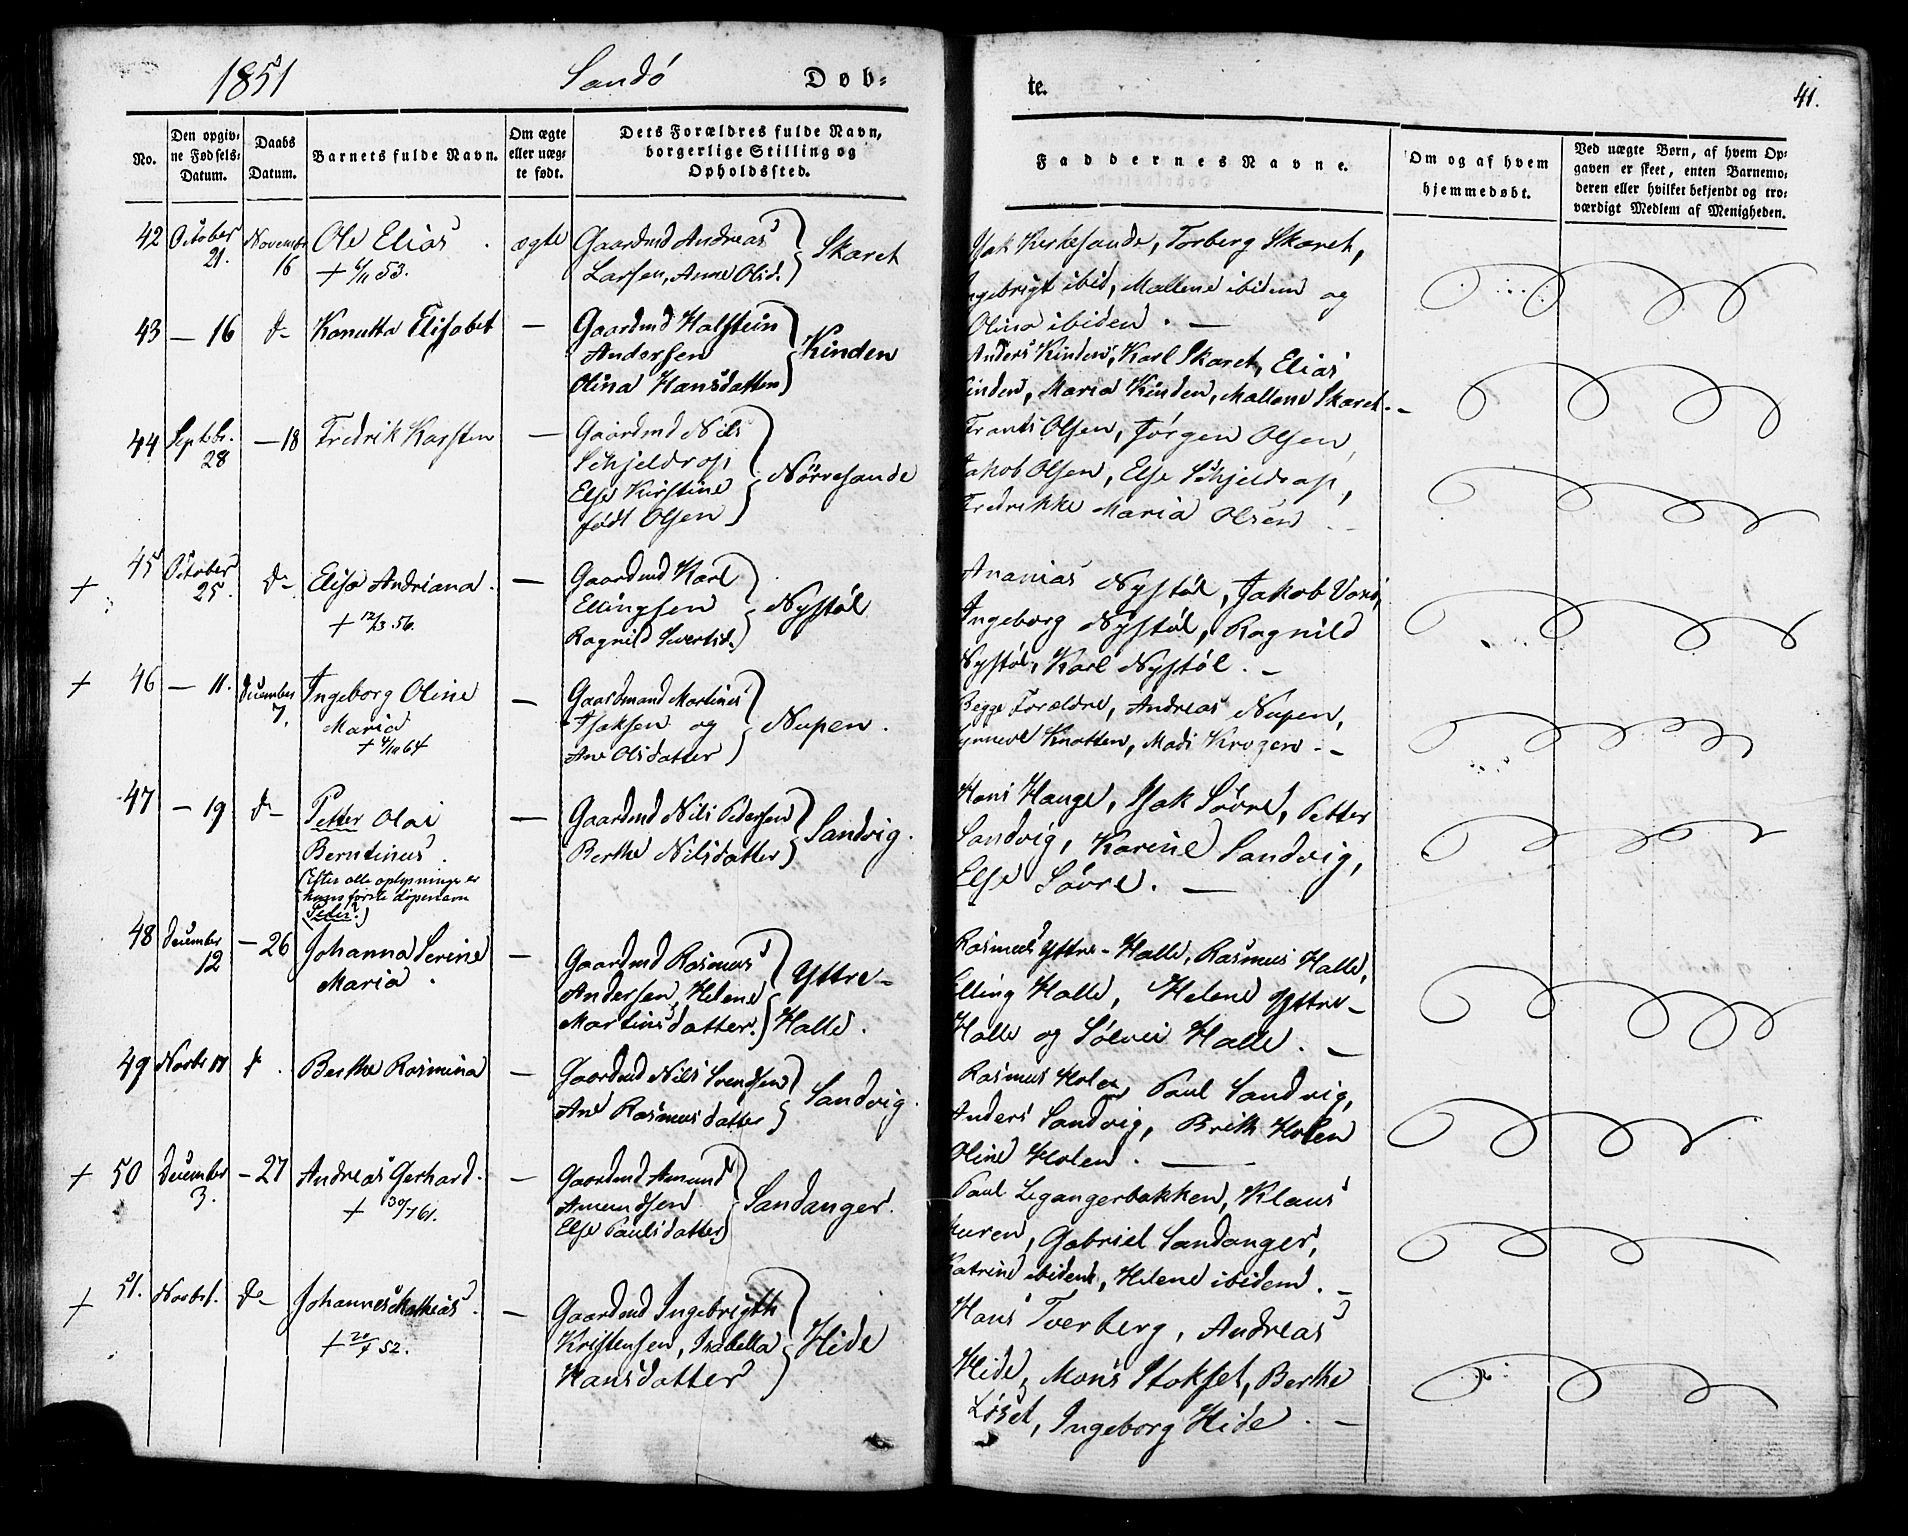 1851 Sandö Døb-
te. 41.
No.
Den opgiv-
ne Fødsels-
Datum.
Daabs
Datum.
Barnets fulde Navn.
Om ægte
eller uæg-
te født.
Dets Forældres fulde Navn,
borgerlige Stilling og
Opholdssted.
Faddernes Navne.
Om og af hvem
hjemmedøbt.
Ved uægte Børn, af hvem Op-
gaven er skeet, enten Barnemo-
deren eller hvilket bekjendt og tro-
værdigt Medlem af Menigheden.
42 October 21. Novembr 16 Ole Elias ægte Gaardmd Andreas
+ 6/11 53. Larsen, Anne Olsd. Skaret
Isak Kirkesande, Torberg Skaret,
Ingebrigt ibid, Mallene ibidem og
Olina ibidem. —
43 — 16 d— Konutta Elisabet — Gaardmd Halstein
Andersen Kinden
Olina Hansdatter
Anders Kinden, Karl Skaret, Elias
Kinden, Maria Kinden, Mallene Skaret. —
44 Septbr. 28 — 18 Fredrik Karsten — Gaardmd Nils
Schjeldrop Nörresande
Else Kirstine
født Olsen
Frants Olsen, Jörgen Olsen,
Jakob Olsen, Else Schjeldrop,
Fredrikke Maria Olsen —
+ 45 October 25. d— Elisa Andriana. — Gaardmd Karl
+ 12/3 56. Ellingsen Nystöl
Ragnild Sivertsd.
Ananias Nystöl, Jakob Vorö,
Ingeborg Nystöl, Ragnild
Nystöl, Karl Nystöl. —
+ 46 — 11. December 7. Ingeborg Oline — Gaardmand Martines
Maria Isaksen og Nupen.
+ 4/10 64 Ane Olsdatter
Begge Forældre, Andreas Nupen,
Knotten, Madi Krogen. —
47 — 19. d— Petter Olai — Gaardmd Nils Pedersen
Berntinus. Berthe Nilsdatter Sandvig.
(Efter alle oplysninge er
hans förste döpenavn
Peter.)
Hans Hauge, Isak Sövre, Petter
Sandvig, Karine Sandvig,
Else Sövre. —
48 December 12 — 26 Johanna Serine — Gaardmd Rasmus
Maria. Andersen, Helene Yttre-
Martinsdatter. Halle.
Rasmus Yttre-Halle, Rasmus Halle,
Elling Halle, Helene Yttre-
Halle og Sölvei Halle. —
49 Novbr 17 d. Berthe Rasmina — Gaardmd Nils Svendsen
Ane Rasmusdatter Sandvig.
Rasmus Holen, Paul Sandvig,
Anders Sandvig, Brith Holen
Oline Holen. —
+ 50 December 3. — 27 Andreas Gerhard. — Gaardmd Amund
+ 30/7 61. Amundsen Sandanger.
Else Paulsdatter
Paul Legangerbakken, Klaus
Furen, Gabriel Sandanger,
Katrine ibidem, Helene ibidem. —
+ 51. Novbr 1. d— Johannes Mathias. — Gaardmd Ingebrigth
+ 20/1 52. Kristensen, Isabella Hide
Hansdatter
Hans Tverberg, Andreas
Hide, Mons Stokset, Berthe
Löset, Ingeborg Hide. —